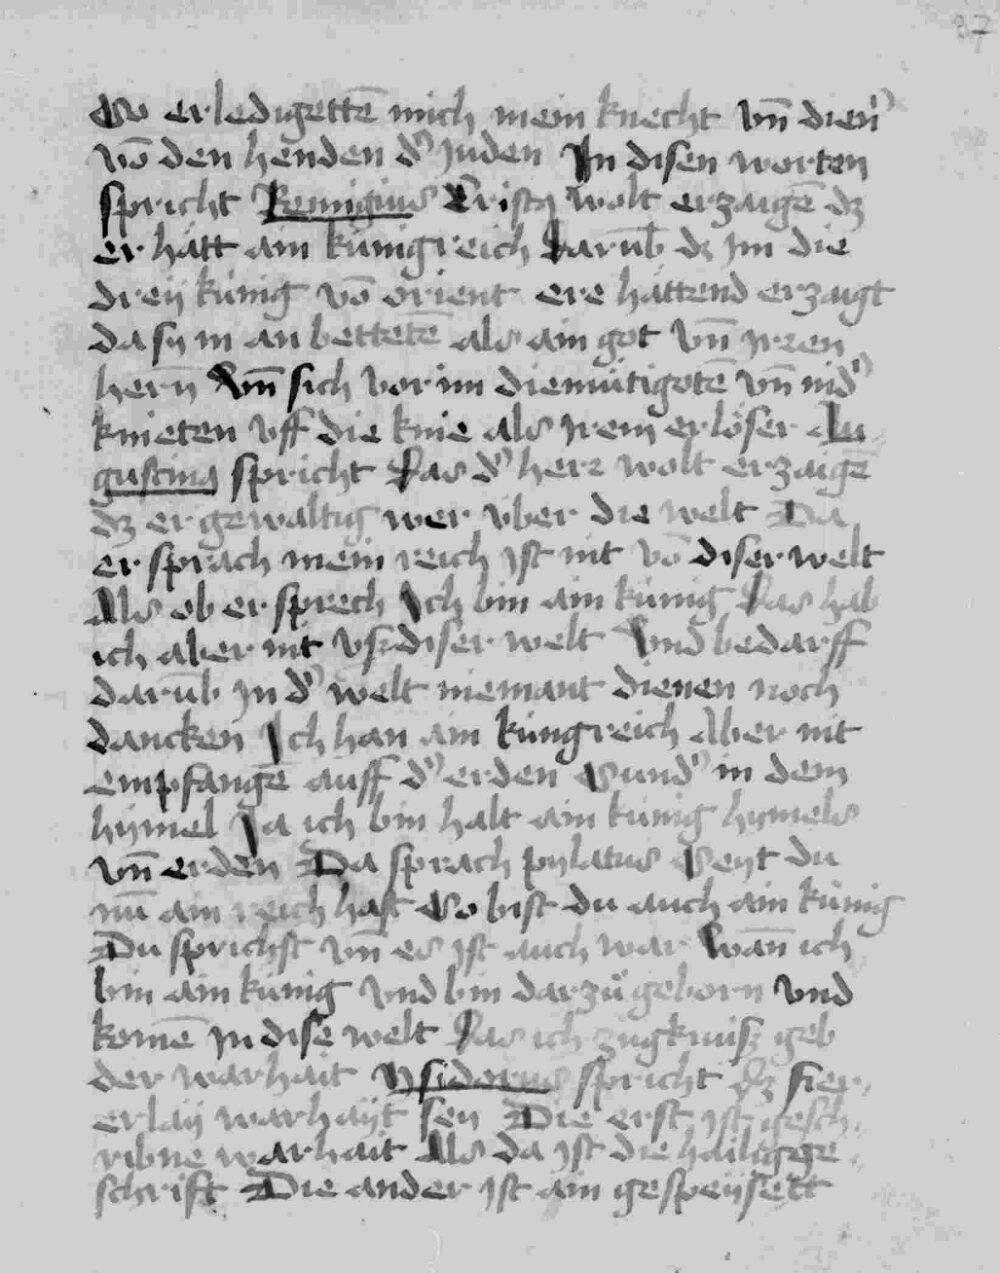 37
So erledigettē mich mein knecht vn̄ dienʾ
vō den henden dʾ Juden In disen worten
spricht Remigius Cristꝰ wolt erzaigē dz
er hätt ain künigreich Darūb dz Jm die
dreÿ künig vō orient ere hättend erzaigt
da sy in an bettetē als ain got vn̄ jrren
hern̄ Vn̄ sich vor im diemütigotē vn̄ nidʾ
knieten vff die knie als jrem erlöser Au
gustinꝰ spricht Das dʾ herr wolt erzaigē
dz er gewaltig wer vber die welt Da
er sprach mein reich ist nit vō diser welt
Als ob er sprech Ich bin ain künig Das hab
ich aber nit vsz diser welt Vnd bedarff
darūb in dʾ welt niemant dienen noch
dancken Ich han ain küngreich Aber nit
empfangē auff dʾ erden Sundʾ in dem
hymel Ja ich bin halt ain künig hymels
vn̄ erden Da sprach pylatus Seyt du
nū ain reich hast So bist du auch ain künig
Du sprichst vn̄ es ist auch war Wan̄ ich
bin ain künig Vnd bin darzů geborn Vnd
komē in dise welt Das ich zugknusz geb
der warhait Ysidorus spricht dz fier
erlaÿ warhaÿt sen Die erst ist gesch
ribne warhait Als da ist die hailig ge
schrift Die ander ist ain gespeÿsett